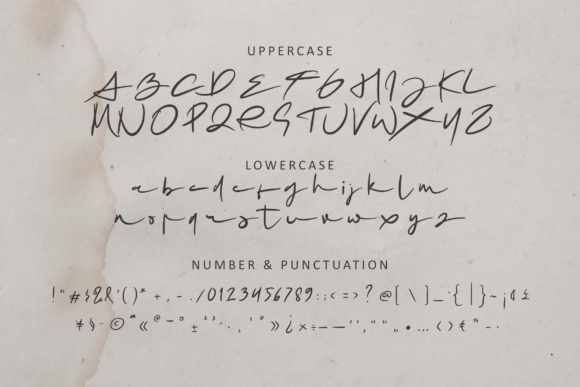 UPPERCASE
A B C D E F G H I J K L
M N O P Q R S T U V W X Y Z
LOWERCASE
a b c d e f g h i j k l m
n o p q r s t u v w x y z
NUMBER & PUNCTUATION
! " # $ % & ' ( ) * + , - . / 0 1 2 3 4 5 6 7 8 9 : ; < = > ? @ [ \ ] _ { | } ~ ¡ ¢ £
© « ± » ¿ × ÷ – — ‘ ’ “ ” „ • … ‹ › €